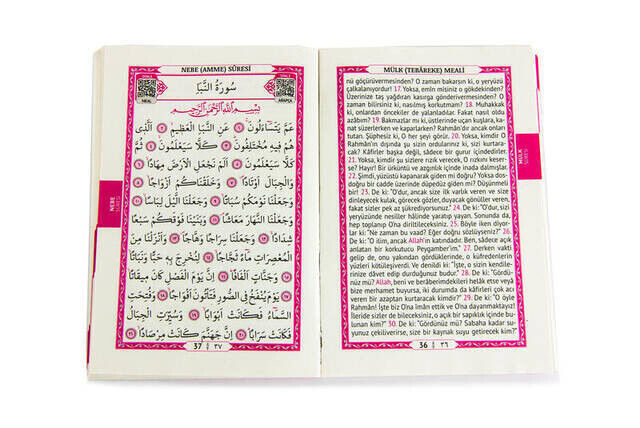 MÜLK (TEBÂREKE) MEALİ
nü göçürüvermesinden? O zaman bakarsın ki, o yeryüzü
çalkalanıyordur! 17. Yoksa, emin misiniz o gökdekinden?
Üzerinize taş yağdıran kasırga göndermesinden? O
zaman bilirsiniz ki, nasılmış korkutmam? 18. Muhakkak
ki, onlardan öncekiler de yalanladılar. Fakat nasıl oldu
azâbım? 19. Bakmazlar mı ki, üstlerinde uçan kuşlara, ka-
nat süzerlerken ve kaparlarken? Rahmân'dır ancak onları
tutan. Şüphesiz ki, O her şeyi görür. 20. Yoksa, kimdir O
Rahmân'ın dışında şu sizin ordularınız ki, sizi kurtara-
cak? Kâfirler başka değil, sâdece bir gurur içindedirler.
21. Yoksa, kimdir şu sizlere rızık verecek, O rızkını kese-
rse? Hayır! Bir ürküntü ve azgınlık içinde inada dalmışlar.
22. Şimdi, yüzüstü kapanarak giden mi doğru? Yoksa dos-
doğru bir cadde üzerinde düpedüz giden mi? Düşünmeli
bir! 23. De ki: "O'dur, ancak size ilk varlık veren ve size
dinleyecek kulak, görecek gözler, duyacak gönüller veren,
fakat sizler pek az şükrediyorsunuz." 24. De ki: "O'dur, sizi
yeryüzünde nesiller hâlinde yaratıp yayan. Sonunda da,
hep toplanıp O'na diriltileceksiniz. 25. Böyle iken diyor-
lar ki: "Ne zaman bu vaad? Eğer doğru sözlüyseniz?" 26.
De ki: "O ilim, ancak Allah'ın katındadır. Ben, sâdece açık
anlatan bir korkutucu Peygamber'im." 27. Derken vakti
gelip de, onu yakından gördüklerinde, o küfredenlerin
yüzleri kötüleşiverdi. Ve denildi ki: "İşte, o sizin kendile-
rinizce dâvet edip durduğunuz budur." 28. De ki: "Gördü-
nüz mü? Allah, beni ve berâberimdekileri helâk etse veyâ
bize merhamet buyursa, iki durumda da kâfirleri çok acı
veren bir azaptan kurtaracak kimdir? 29. De ki: "O öyle
Rahmân! İşte biz O'na îmân ettik ve O'na dayanmaktayız!
İleride sizler de bileceksiniz, o açık bir sapıklık içinde bu-
lunan kim?" 30. De ki: "Gördünüz mü? Sabaha kadar su-
yunuz çekiliverirse, size bir kaynak suyu getirecek kim?"
36 ٣٦
MÜLK
SÛRESİ
NEBE (AMME) SÛRESİ
سُورَةُ النَّبَأِ
MEAL
ARAPÇA
بِسْمِ اللّٰهِ الرَّحْمٰنِ الرَّحِيمِ
عَمَّ يَتَسَٓاءَلُونَ ﴿١﴾ عَنِ النَّبَأِ الْعَظِيمِ ﴿٢﴾ اَلَّذِى
هُمْ فِيهِ مُخْتَلِفُونَ ﴿٣﴾ كَلَّا سَيَعْلَمُونَ ﴿٤﴾ ثُمَّ
كَلَّا سَيَعْلَمُونَ ﴿٥﴾ اَلَمْ نَجْعَلِ الْاَرْضَ مِهَادًا ﴿٦﴾
وَالْجِبَالَ اَوْتَادًا ﴿٧﴾ وَخَلَقْنَاكُمْ اَزْوَاجًا ﴿٨﴾
وَجَعَلْنَا نَوْمَكُمْ سُبَاتًا ﴿٩﴾ وَجَعَلْنَا الَّيْلَ لِبَاسًا ﴿١٠﴾
وَجَعَلْنَا النَّهَارَ مَعَاشًا ﴿١١﴾ وَبَنَيْنَا فَوْقَكُمْ سَبْعًا
شِدَادًا ﴿١٢﴾ وَجَعَلْنَا سِرَاجًا وَهَّاجًا ﴿١٣﴾ وَاَنْزَلْنَا مِنَ
الْمُعْصِرَاتِ مَٓاءً ثَجَّاجًا ﴿١٤﴾ لِنُخْرِجَ بِهِ حَبًّا وَنَبَاتًا
﴿١٥﴾ وَجَنَّاتٍ اَلْفَافًا ﴿١٦﴾ اِنَّ يَوْمَ الْفَصْلِ كَانَ مِيقَاتًا
﴿١٧﴾ يَوْمَ يُنْفَخُ فِى الصُّورِ فَتَأْتُونَ اَفْوَاجًا ﴿١٨﴾ وَفُتِحَتِ
السَّمَٓاءُ فَكَانَتْ اَبْوَابًا ﴿١٩﴾ وَسُيِّرَتِ الْجِبَالُ
فَكَانَتْ سَرَابًا ﴿٢٠﴾ اِنَّ جَهَنَّمَ كَانَتْ مِرْصَادًا ﴿٢١﴾
37 ٣٧
NEBE
SÛRESİ